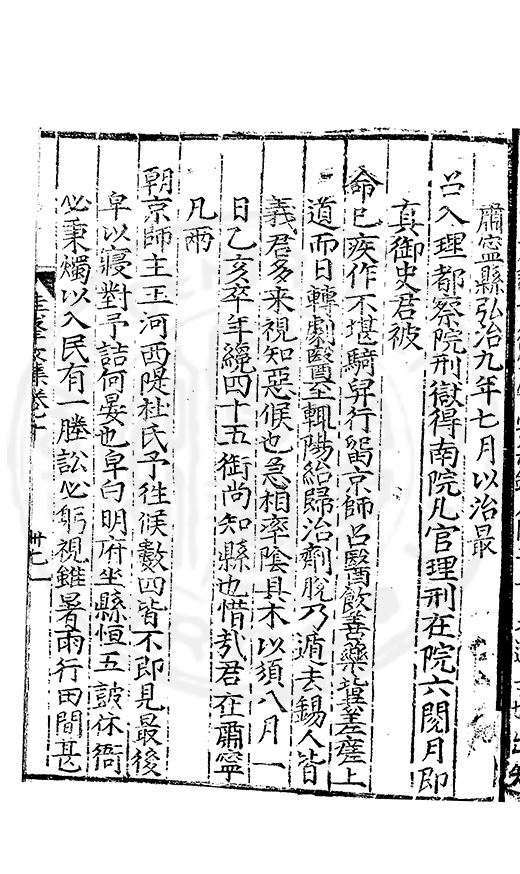 肅寧縣弘治九年七月以治最
召入理都察院刑獄得南院凡官理刑在院六閱月即
真御史君被
命已疾作不堪騎舁行留京師召醫飲善藥堪差塗上
道而日轉劇醫至輒陽紿歸治劑脫乃遁去錫人皆
義君多來視知惡候也急相率隂具木以須八月一
日乙亥卒年纔四十五銜尚知縣也惜哉君在肅寧
凡兩
朝京師主玉河西隄杜氏予徃候數四皆不即見最後
皁以寢對予詰何晏也皁白明府坐縣恒五鼓休衙
必秉燭以入民有一塍訟必躬視雖暑雨行田間甚
文集卷
卅七